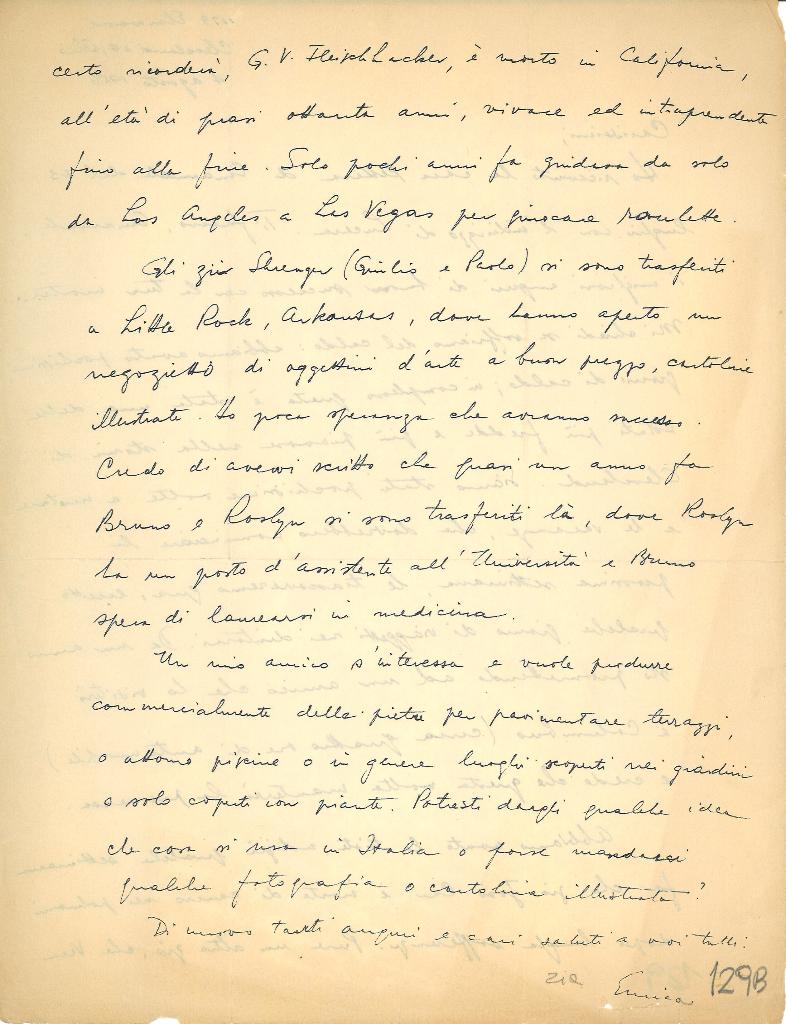 certo ricorderà, G. V. Fleischhacker, è morto in California,
all'età di quasi ottanta anni, vivace ed intraprendente
fino alla fine. Solo pochi anni fa guidava da solo
da Los Angeles a Las Vegas per giuocare roulette.
Gli zii Shrenger (Giulio e Paolo) si sono trasferiti
a Little Rock, Arkansas, dove hanno aperto un
negozietto di oggettini d'arte a buon prezzo, cartoline
illustrate. Ho poca speranza che avranno successo.
Credo di avervi scritto che quasi un anno fa
Bruno e Roslyn si sono trasferiti là, dove Roslyn
ha un posto d'assistente all'Università e Bruno
spera di laurearsi in medicina.
Un mio amico s'interessa e vuole produrre
commercialmente delle pietre per pavimentare terrazzi,
o attorno piscine o in genere luoghi scoperti nei giardini
o solo coperti con piante. Potresti dargli qualche idea
che cosa si usa in Italia o forse mandarci
qualche fotografia o cartolina illustrata?
Di nuovo tanti auguri e cari saluti a voi tutti.
zia
Enrica
129B